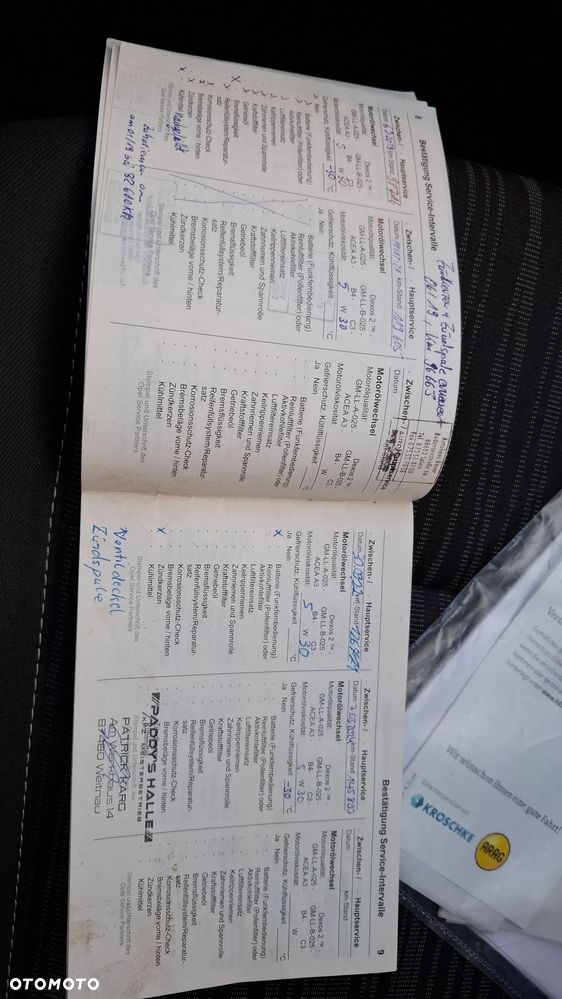 8 Bestätigung Service-Intervalle
Zwischen- / Hauptservice
Datum km-Stand
Motorölwechsel
Motorölqualität: Dexos 2 ™ -
GM-LL-A-025 - GM-LL-B-025 -
ACEA A3 - B4 - C3 -
Motorölviskosität: 5 W 30
Gefrierschutz, Kühlflüssigkeit -30 °C
Ja Nein
Batterie (Funkfernbedienung)
Reinluftfilter (Pollenfilter) oder
Aktivkohlefilter
Luftfiltereinsatz
Keilrippenriemen
Zahnriemen und Spannrolle
Kraftstofffilter
Getriebeöl
Bremsflüssigkeit
Reifenfüllsystem/Reparatur-
satz
Korrosionsschutz-Check
Bremsbeläge vorne / hinten
Zündkerzen
Kühlmittel
Stempel und Unterschrift des
Opel Service Partners
Zwischen- / Hauptservice
Datum km-Stand 119 605
Motorölwechsel
Motorölqualität: Dexos 2 ™ -
GM-LL-A-025 - GM-LL-B-025 -
ACEA A3 - B4 - C3 -
Motorölviskosität: 5 W 30
Gefrierschutz, Kühlflüssigkeit °C
Ja Nein
Batterie (Funkfernbedienung)
Reinluftfilter (Pollenfilter) oder
Aktivkohlefilter
Luftfiltereinsatz
Keilrippenriemen
Zahnriemen und Spannrolle
Kraftstofffilter
Getriebeöl
Bremsflüssigkeit
Reifenfüllsystem/Reparatur-
satz
Korrosionsschutz-Check
Bremsbeläge vorne / hinten
Zündkerzen
Kühlmittel
Stempel und Unterschrift des
Opel Service Partners
Zwischen- /
Datum
Motorölwechsel
Motorölqualität: Dexos 2 ™
GM-LL-A-025 - GM-LL-B-025
ACEA A3 - B4 - C3
Motorölviskosität: W
Gefrierschutz, Kühlflüssigkeit
Ja Nein
Batterie (Funkfernbedienung)
Reinluftfilter (Pollenfilter) oder
Aktivkohlefilter
Luftfiltereinsatz
Keilrippenriemen
Zahnriemen und Spannrolle
Kraftstofffilter
Getriebeöl
Bremsflüssigkeit
Reifenfüllsystem/Reparatur-
satz
Korrosionsschutz-Check
Bremsbeläge vorne / hinten
Zündkerzen
Kühlmittel
Stempel und Unterschrift des
Opel Service Partners
Bestätigung Service-Intervalle 9
Zwischen- / Hauptservice
Datum km-Stand
Motorölwechsel
Motorölqualität: Dexos 2 ™ -
GM-LL-A-025 - GM-LL-B-025 -
ACEA A3 - B4 - C3 -
Motorölviskosität: 5 W 30
Gefrierschutz, Kühlflüssigkeit °C
Ja Nein
X Batterie (Funkfernbedienung)
Reinluftfilter (Pollenfilter) oder
Aktivkohlefilter
Luftfiltereinsatz
Keilrippenriemen
Zahnriemen und Spannrolle
Kraftstofffilter
Getriebeöl
Bremsflüssigkeit
Reifenfüllsystem/Reparatur-
satz
Korrosionsschutz-Check
Bremsbeläge vorne / hinten
X Zündkerzen
Kühlmittel
Stempel und Unterschrift des
Opel Service Partners
Ventildeckel
Zündspule
Zwischen- / Hauptservice
Datum km-Stand 145 890
Motorölwechsel
Motorölqualität: Dexos 2 ™ -
GM-LL-A-025 - GM-LL-B-025 -
ACEA A3 - B4 - C3 -
Motorölviskosität: 5 W 30
Gefrierschutz, Kühlflüssigkeit -30 °C
Ja Nein
Batterie (Funkfernbedienung)
Reinluftfilter (Pollenfilter) oder
Aktivkohlefilter
Luftfiltereinsatz
Keilrippenriemen
Zahnriemen und Spannrolle
Kraftstofffilter
Getriebeöl
Bremsflüssigkeit
Reifenfüllsystem/Reparatur-
satz
Korrosionsschutz-Check
Bremsbeläge vorne / hinten
PADDYS HALLE
KFZ-MEISTERBETRIEB
PATRICK KARG
87480 Weitnau
Zwischen- / Hauptservice
Datum km-Stand
Motorölwechsel
Motorölqualität: Dexos 2 ™ -
GM-LL-A-025 - GM-LL-B-025 -
ACEA A3 - B4 - C3 -
Motorölviskosität: W
Gefrierschutz, Kühlflüssigkeit °C
Ja Nein
Batterie (Funkfernbedienung)
Reinluftfilter (Pollenfilter) oder
Aktivkohlefilter
Luftfiltereinsatz
Keilrippenriemen
Zahnriemen und Spannrolle
Kraftstofffilter
Getriebeöl
Bremsflüssigkeit
Reifenfüllsystem/Reparatur-
satz
Korrosionsschutz-Check
Bremsbeläge vorne / hinten
Zündkerzen
Kühlmittel
Stempel und Unterschrift des
Opel Service Partners
Wir wünschen Ihnen eine gute Fahrt!
KROSCHKE
ARAG
OTOMOTO